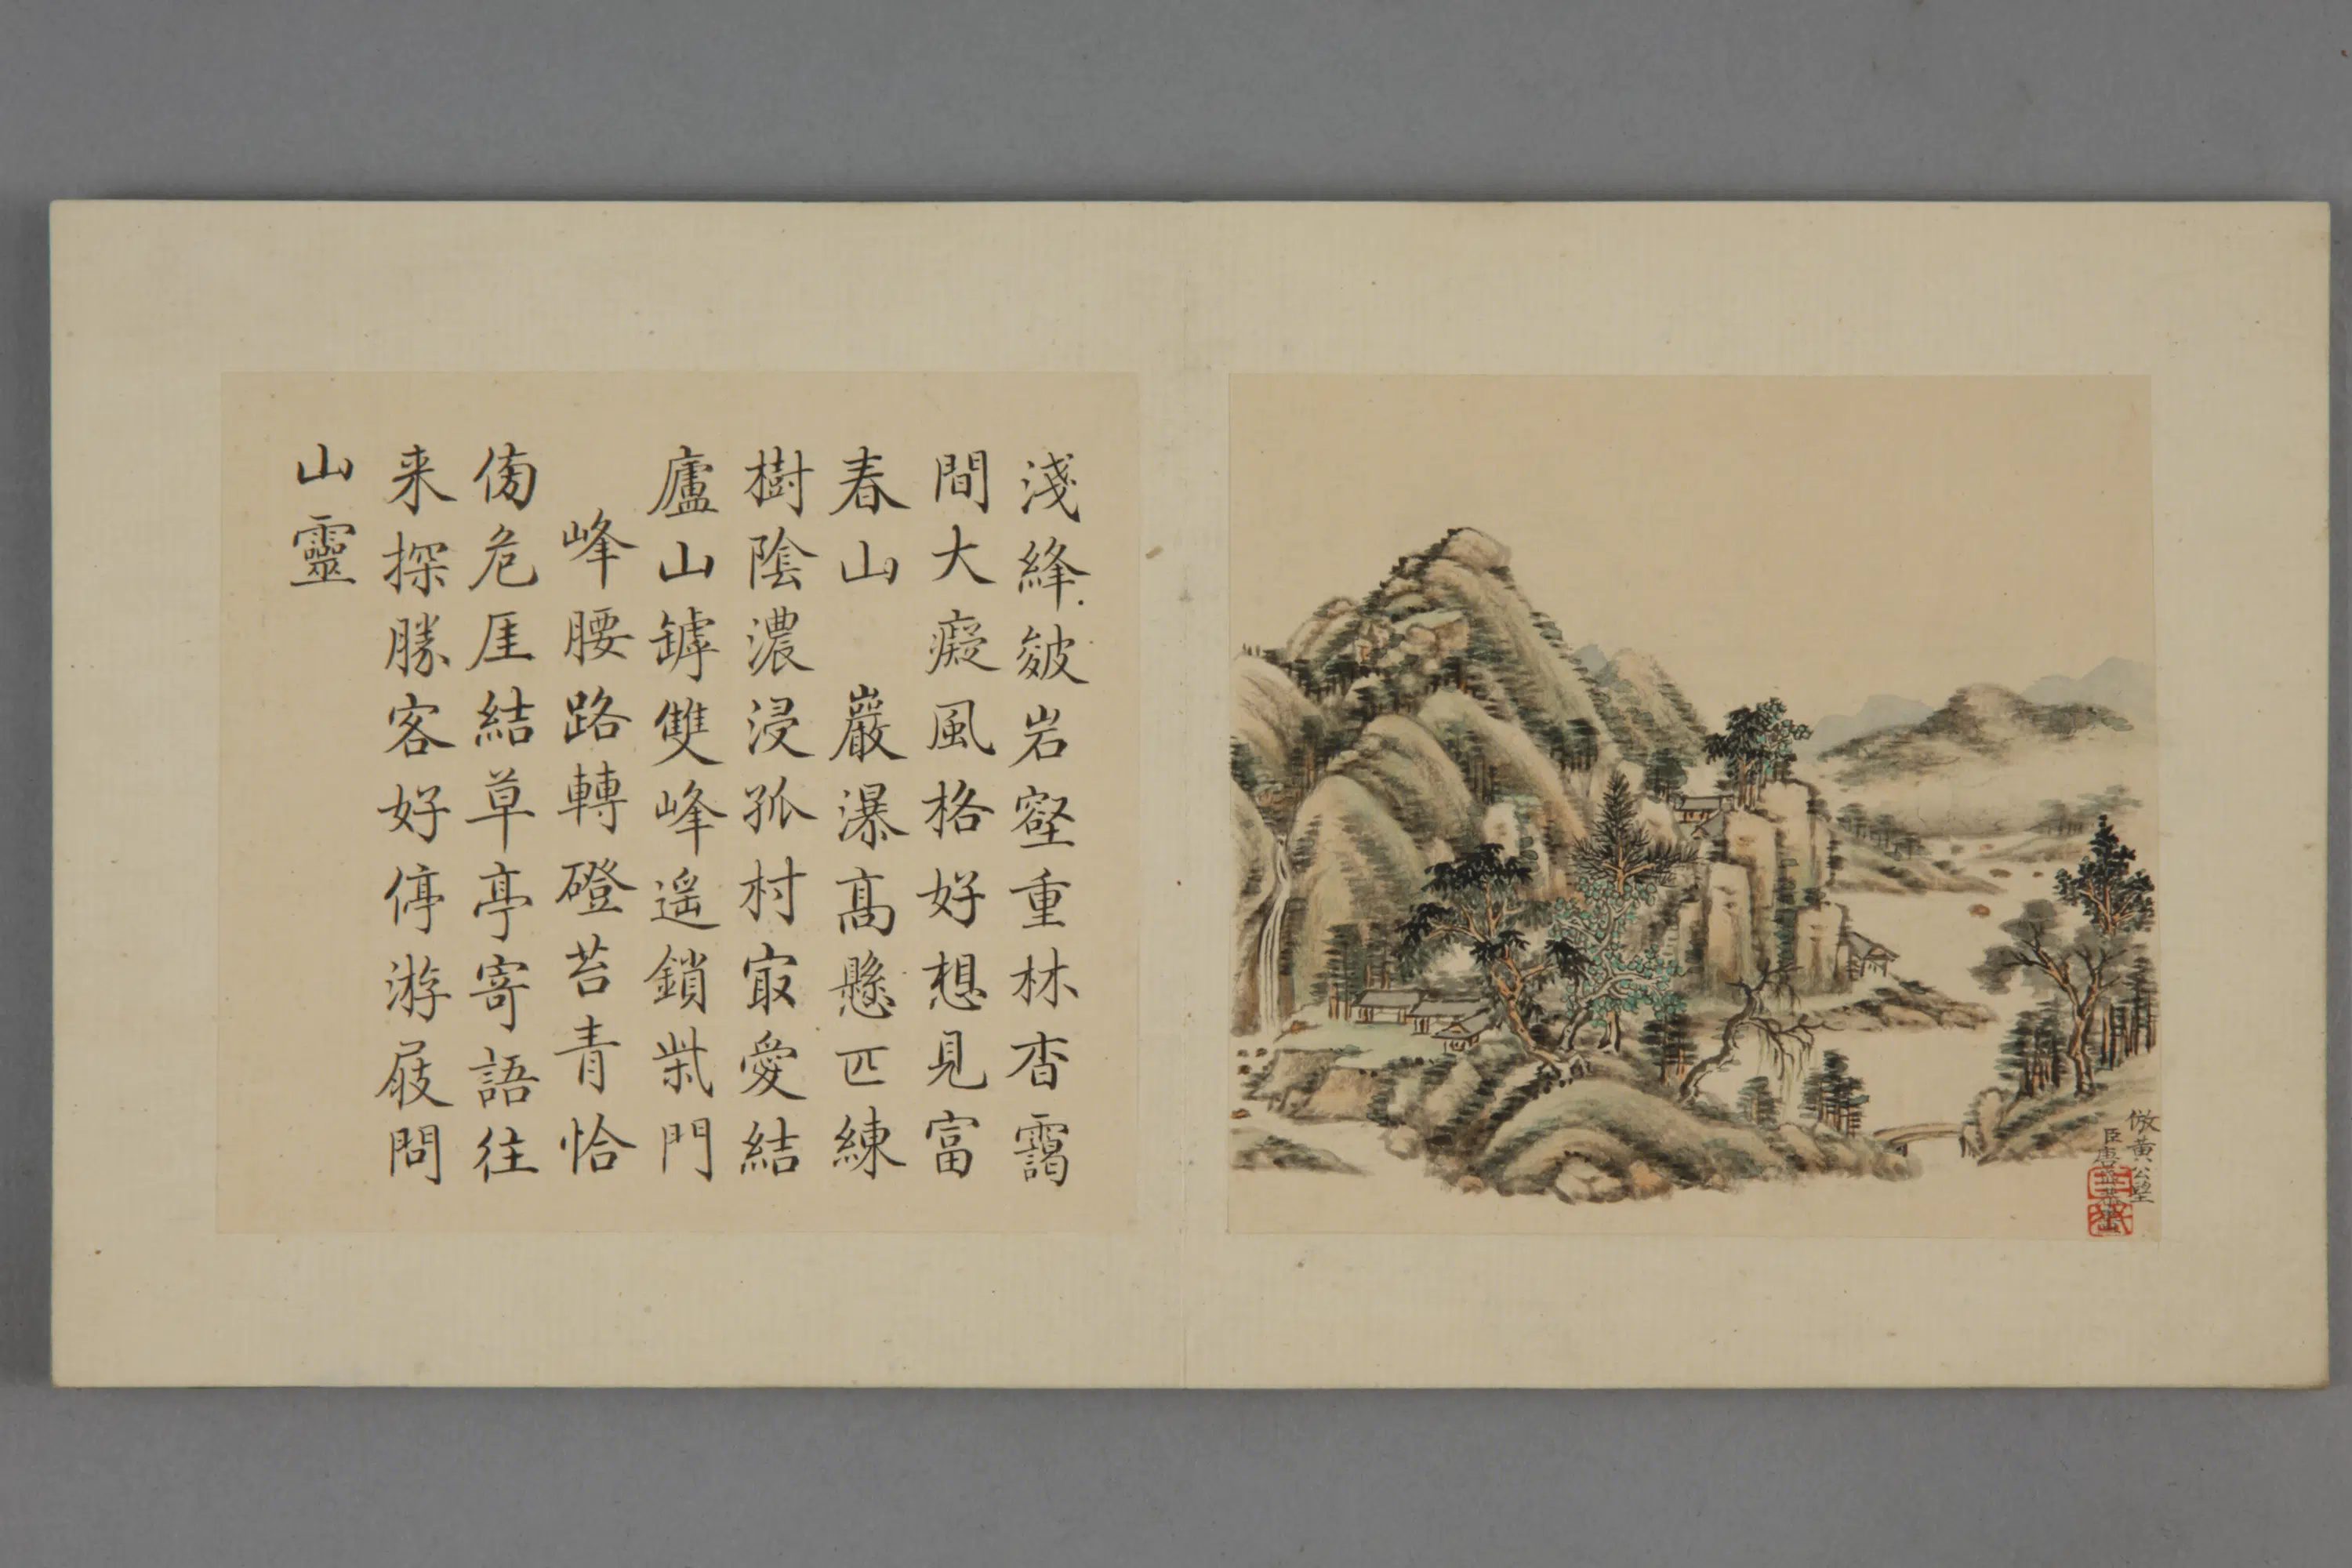 淺絳皴岩壑重林杳靄
間大癡風格好想見富
春山　巖瀑高懸匹練
樹陰濃浸孤村㝡愛結
廬山罅雙峰遥鎖柴門
峰腰路轉磴苔青恰
傍危厓結草亭寄語往
来探勝客好停游屐問
山靈
倣黄公望
臣唐岱恭畫